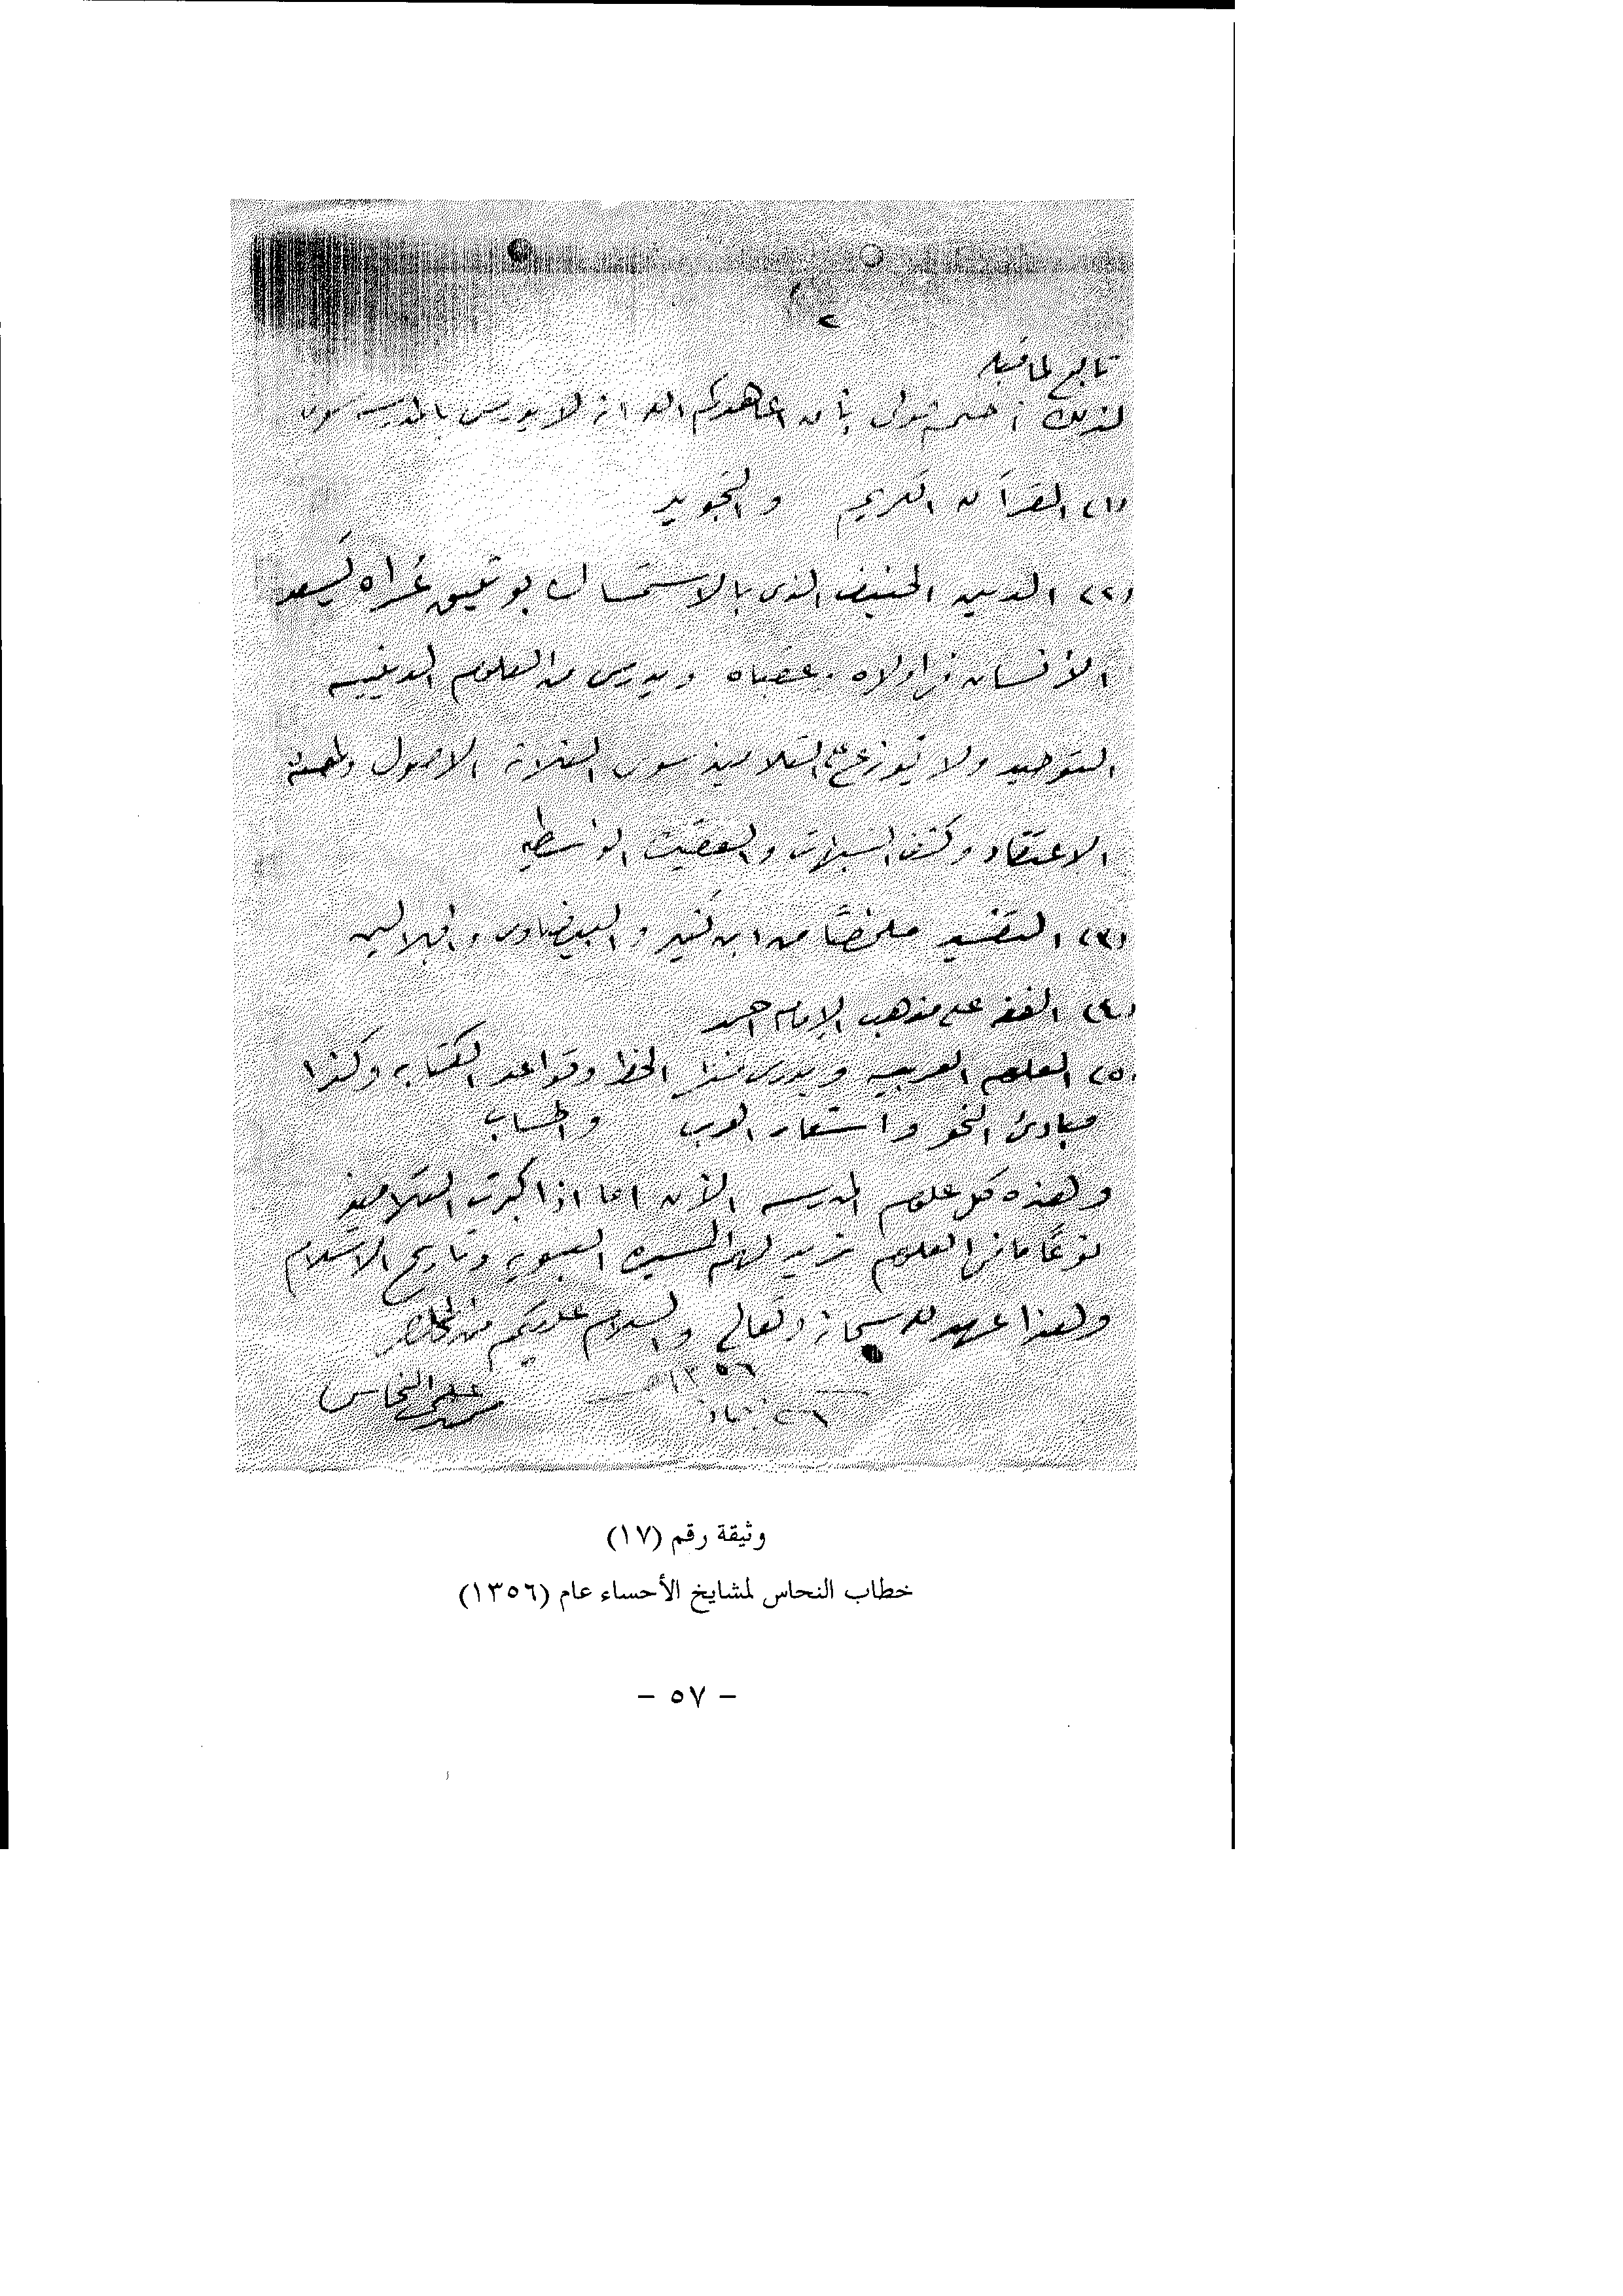 ٢
تابع لما قبله
لذلك أختم قولى بأن اعاهدكم الله انه لا يدرس بالمدرسة سوى
(١) القرآن الكريم والتجويد
(٢) الدين الحنيف الذى بالاستمساك بوثيق عراه يسعد
الأنسان فى اولاه وعقباه ويدرس من العلوم الدينيه
التوحيد ولا يوزع على التلاميذ سوى الثلاثة الاصول ولمعة
الاعتقاد وكشف الشبهات والعقيدة الواسطيه
(٣) التفسير ملخصًا من ابن كثير والبيضاوى والجلالين
(٤) الفقه على مذهب الإمام احمد
(٥) العلوم العربيه ويدرس الخط وقواعد الكتابه وكذا
مبادئ النحو واشعار العرب والحساب
وهذه كل علوم المدرسه الأن اما اذا كبرت التلاميذ
نوعًا ما فى العلوم نزيد لهم السيره النبويه وتاريخ الاسلام
وهذا عهد لله سبحانه وتعالى والسلام عليكم من المخلص
١٣٥٦
النحاس
وثيقة رقم (١٧)
خطاب النحاس لمشايخ الأحساء عام (١٣٥٦)
- ٥٧ -